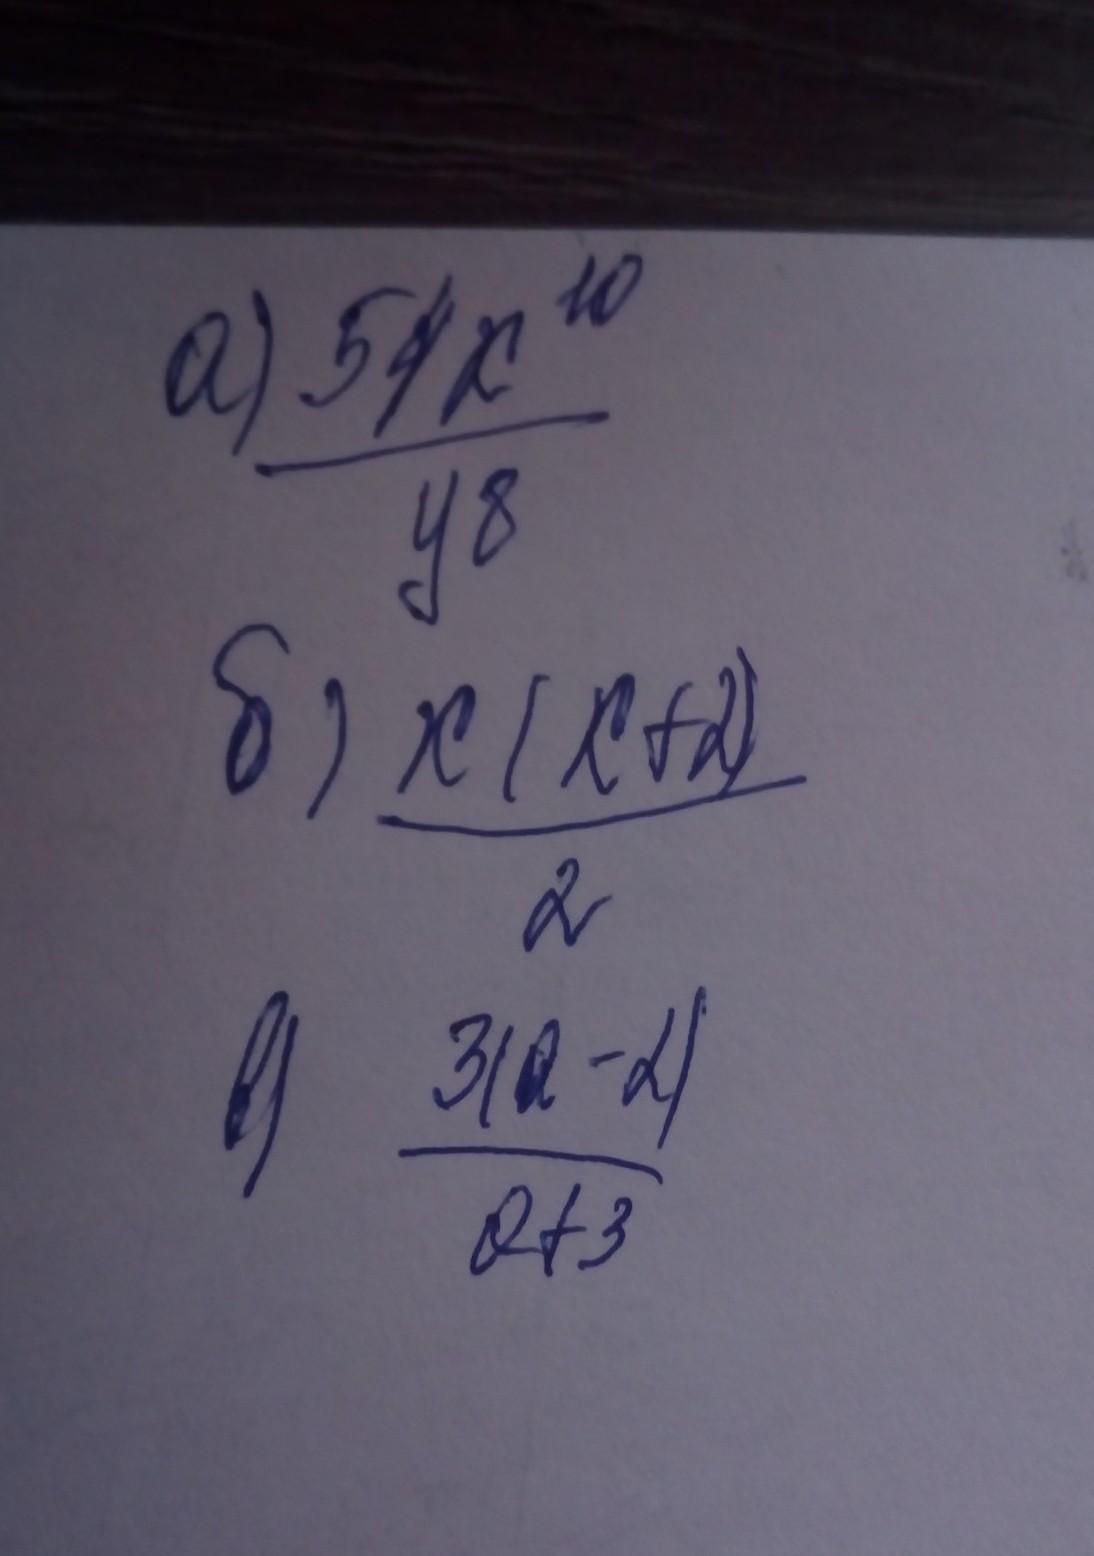 а) 54x¹⁰
y8
б) x(x+2)
2
в) 3(a-2)
a+3